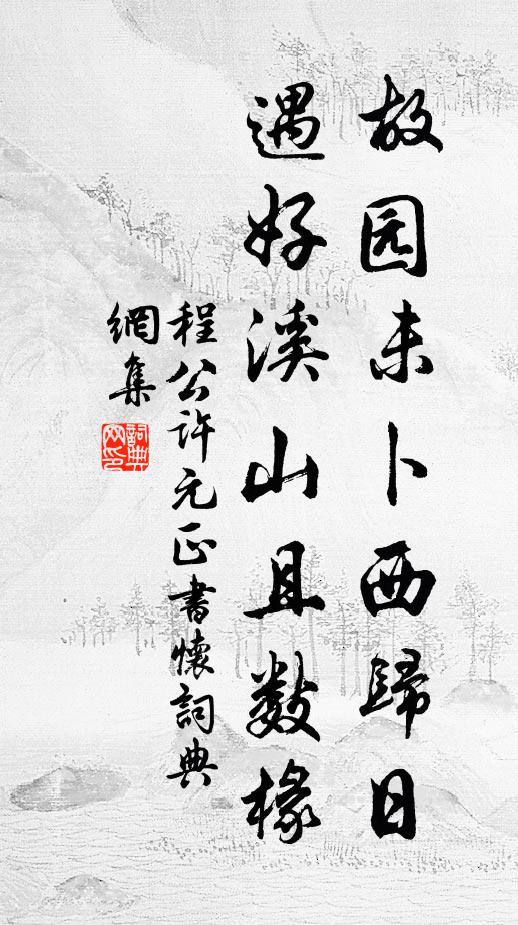 故园未卜西歸日
遇好溪山且数椽
程公许元正書懷詞典
網集
詞典網印